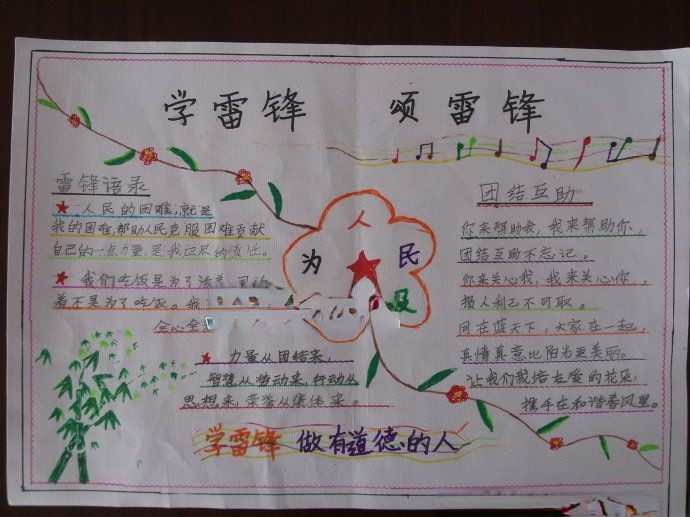 学雷锋 颂雷锋
雷锋语录
人民的困难,就是
我的困难,帮助人民克服困难贡献
自己的一点力量,是我应尽的责任。
我们吃饭是为了活着,可活
着不是为了吃饭。我
全心全
力量从团结来,
智慧从劳动来,行动从
思想来,荣誉从集体来。
为人民
团结互助
你来帮助我,我来帮助你,
团结互助不忘记。
你来关心我,我来关心你,
损人利己不可取。
同在蓝天下,大家在一起,
真情真意比阳光更美丽。
让我们栽培友爱的花朵,
携手在和谐春风里。
学雷锋 做有道德的人